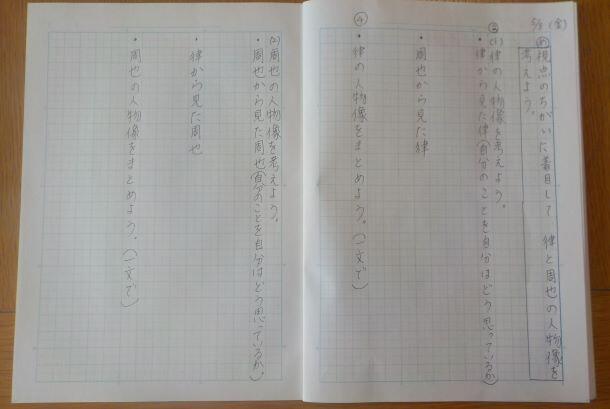 5/9 (金)
め 視点のちがいに着目して 律と周也の人物像を
考えよう。
③(1)律の人物像を考えよう。
・律から見た律(自分のことを自分はどう思っているか)
・周也から見た律
④
・律の人物像をまとめよう。(一文で)
(2)周也の人物像を考えよう。
・周也から見た周也(自分のことを自分はどう思っているか。)
・律から見た周也
・周也の人物像をまとめよう。(一文で)